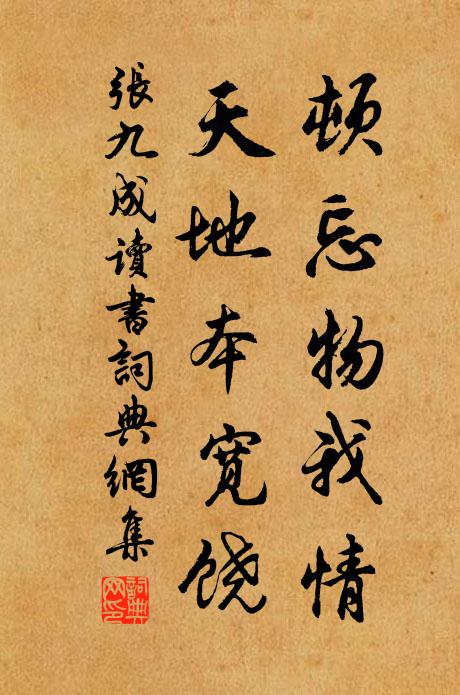 頓忘物我情
天地本寬饒
張九成讀書詞典網集
詞典網印